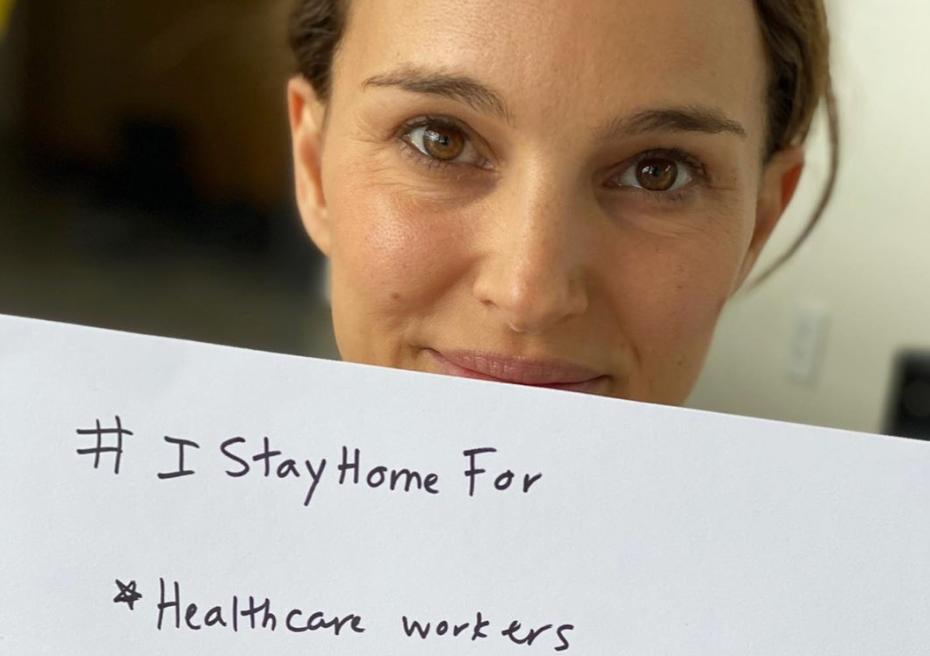 # I StayHome For
* Healthcare workers